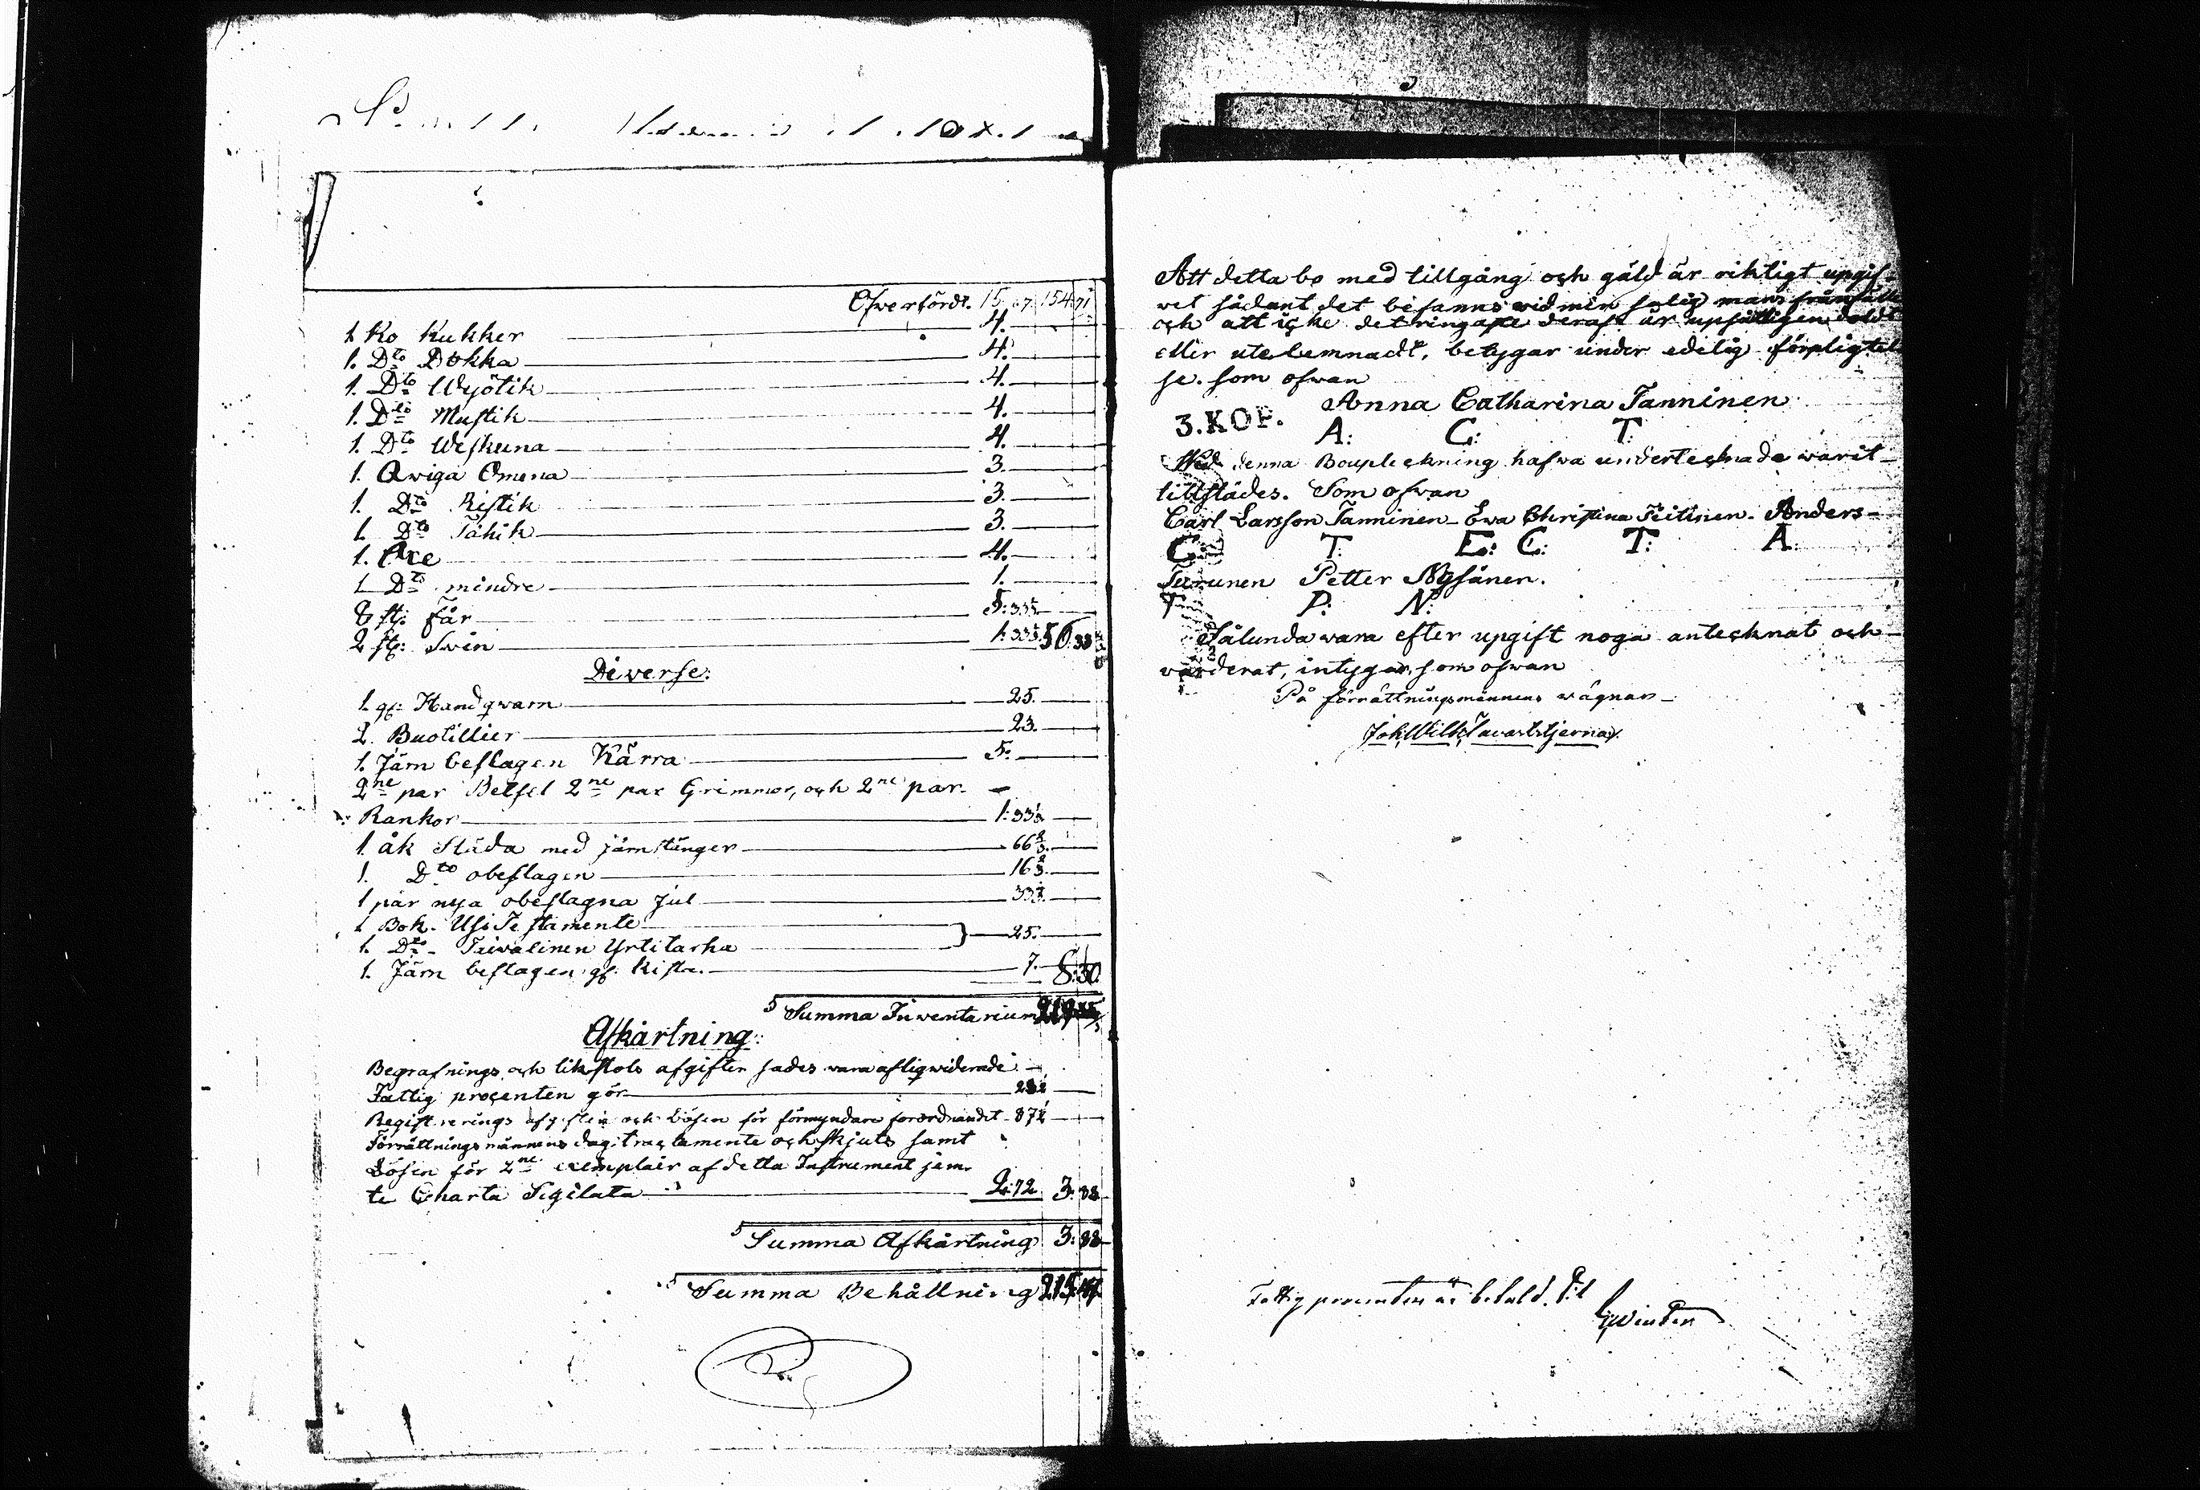 Öfverfördt. 15 67 154 71
1 Ko Kukker 4.
1. Dto Dokka 4.
1. Dto Wyötik 4.
1. Dto Mustik 4.
1. Dto Weskuna 4.
1. Qwiga Omena 3.
1. Dto Ristik 3.
1. Dto Tähik 3.
1. Oxe 4.
1 Dto mindre 1.
8 st: Får 5:33⅓
2 st: Swin 1:33⅓ 56.38
Diverse:
1. gl: Handqwarn 25.
2. Buotillier 23.
1. Järn beslagen Kärra 5.
2ne par Betsel 2ne par Grimmor, och 2ne par
Rankor 1:33⅓
1. åk Släda med järnstänger 66⅔
1. Dto obeslagen 16⅔
1 par nya obeslagna Jul 33⅓
1 Bok. Usi Testamente
1. Dto Taiwalinen Yrtitarha 25.
1. Järn beslagen gl. Kista. 7. 8:30
Summa Inventarium
Afkårtning:
Begrafnings och likstols afgifter sades vara afliqwiderade
Fattig procenten gör
Registrerings afgiften och Lösen för förmyndare forordnandet 87½
Förrättningsmännens dagtractamente och skjuts samt
Lösen för 2ne exemplair af detta Instrument jem
te Charta Sigilata 2:72 3:88
Summa Afkårtning 3:88
Summa Behållning
Att detta bo med tillgång och gäld är riktigt upgif
vet sådant det befanns vid min salig mans frånfälle
och att icke det ringaste deraf är upsåtligen doldt
eller utelemnadt, betygar under edelig förpligtel
se. som ofvan
Anna Catharina Tanninen
3.KOP. A: C: T:
Wid denna Bouptekning hafva undertecknade warit
tillstädes. Som ofvan
Carl Larsson Tanninen Ewa Christina Teitinen. Anders
C: T: E: C: T: A:
Turunen Petter Nysänen.
T P: N:
Sålunda vara efter upgift noga antecknat och
värderat, intygar, som ofvan
På förrättningsmännens vägnar
Joh. Wilh. Tavaststjerna
Fattig procenten är betald.